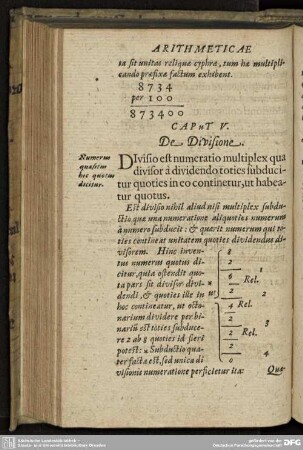 ARITHMETICAE
ta sit unitas reliquæ cyphræ, tum hæ multipli
cando præfixæ factum exhibent.
8734
per 100
873400
CAPUT V.
De Divisione.
Numerus
quæsitus
hic quotus
dicitur.
DIvisio est numeratio multiplex qua
divisor à dividendo toties subduci-
tur quoties in eo continetur, ut habea-
tur quotus.
Est divisio nihil aliud nisi multiplex subdu-
ctio, quæ una numeratione aliquoties numerum
à numero subducit: & quærit numerum qui to-
ties contineat unitatem quoties dividendus di-
visorem. Hinc inven-
tus numerus quotus di-
citur, quia ostendit quo-
ta pars sit divisor divi-
dendi, & quoties ille in
hoc contineatur, ut octo-
narium dividere per bi-
narium est toties subduce-
re 2 ab 8 quoties id fieri
potest: Subductio qua-
ter facta est, sed unica di-
visionis numeratione perficietur ita:
8
2 1
6 Rel.
2 2
4 Rel.
2 3
2 Rel.
2 4
0
Quæ